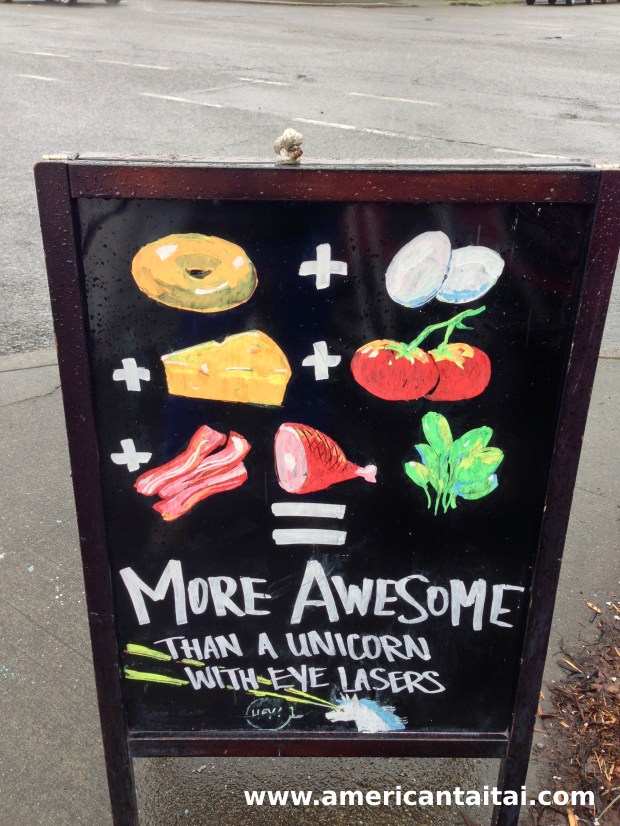 +
+ +
+
=
MORE AWESOME
THAN A UNICORN
WITH EYE LASERS
HEY!
www.americantaitai.com